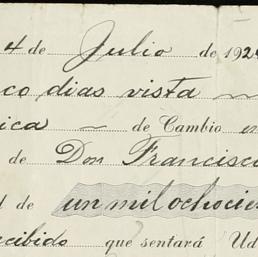 4 de Julio de 192
co dias vista
ica de Cambio
de Don Francisc
d de un mil ochocie
ecibido que sentará Ud